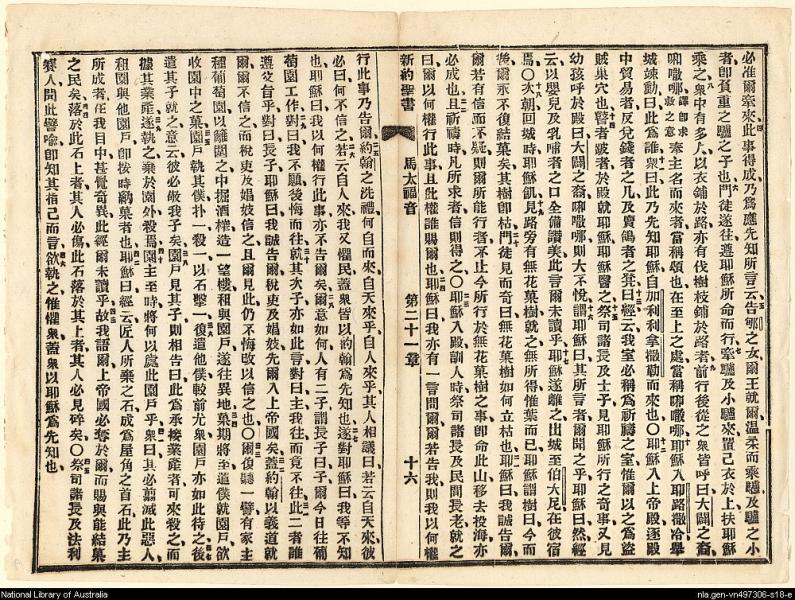 必准爾牽來此事得成乃爲應先知所言云告郇之女爾王就爾温柔而乘驢及驢之小
者卽負重之驢之子也門徒遂往遵耶穌所命而行牽驢及小驢來置己衣於上扶耶穌
乘之衆中有多人以衣鋪於路亦有伐樹枝鋪於路者前行後從之衆皆呼曰大闢之裔
譯卽求救之意奉主名而來者當稱頌也在至上之處當稱耶穌入耶路撒冷舉
城竦動曰此爲誰衆曰此乃先知耶穌自加利利拿撒勒而來也○耶穌入上帝殿逐殿
中貿易者反兌錢者之几及賣鴿者之凳曰經云我室必稱爲祈禱之室惟爾以之爲盜
賊巢穴也瞽者跛者於殿就耶穌耶穌醫之祭司諸長及士子見耶穌所行之奇事又見
幼孩呼於殿曰大闢之裔則大不悅謂耶穌曰其所言者爾聞之乎耶穌曰然經
云以嬰兒及乳哺者之口全備讚美此爾未讀乎耶穌遂離之出城至伯大尼在彼宿
焉○次朝回城時耶穌飢見路旁有無花菓樹就之無所得惟葉而已耶穌謂樹曰今而
後爾永不復結菓矣其樹卽枯門徒見而奇曰無花菓樹如何立枯也耶穌曰我誠告爾
爾若有信而不疑則爾所能行者不止今所行於無花菓樹之事卽命此山移去投海亦
必成也且祈禱時凡所求者信則得之○耶穌入殿訓人時祭司諸長及民間長老就之
曰爾以何權行此事且此權誰賜爾也耶穌曰我亦有一言問爾爾若告我則我以何權
新約聖書 馬太福音 第二十一章 十六
行此事乃告爾約翰之洗禮何自而來自天來乎自人來乎其人相議曰若云自天來彼
必曰何不信之若云自人來我又懼民蓋衆皆以約翰爲先知也遂對耶穌曰我等不知
也耶穌曰我以何權行此事亦不告爾矣爾意如何人有二子謂長子曰子爾今日往葡
萄園工作對曰我不願後悔而往就其次子亦如此言對曰主我往而竟不往此二者誰
遵父旨乎對曰長子耶穌曰我誠告爾稅吏及娼妓先爾入上帝國矣蓋約翰以義道就
爾爾不信之而稅吏及娼妓信之且爾見此仍不悔改以信之○爾復聽一譬有家主
種葡萄園以籬圍之中掘酒榨造一望樓租與園戶遂往異地菓期將至遣僕就園戶欲
收園中之菓園戶執其僕扑一殺一以石擊一復遣他僕較前尤衆園戶亦如此待之後
遣其子就之意云彼必敬我子矣園戶見其子則相告曰此爲承接業產者可來殺之而
據其業產遂執之棄於園外殺焉園主至時將何以處此園戶乎衆曰其必翦滅此惡人
租園與他園戶卽按時納菓者也耶穌曰經云匠人所棄之石成爲屋角之首石此乃主
所成者在我目中甚覺奇異此經爾未讀乎故我語爾上帝國必奪於爾而賜與能結菓
之民矣落於此石上者其人必傷此石落於其上者其人必見碎矣○祭司諸長及法利
賽人聞此譬喻卽知其指己而言欲執之惟懼衆蓋衆以耶穌爲先知也
National Library of Australia
nla.gen-vn497306-s18-e